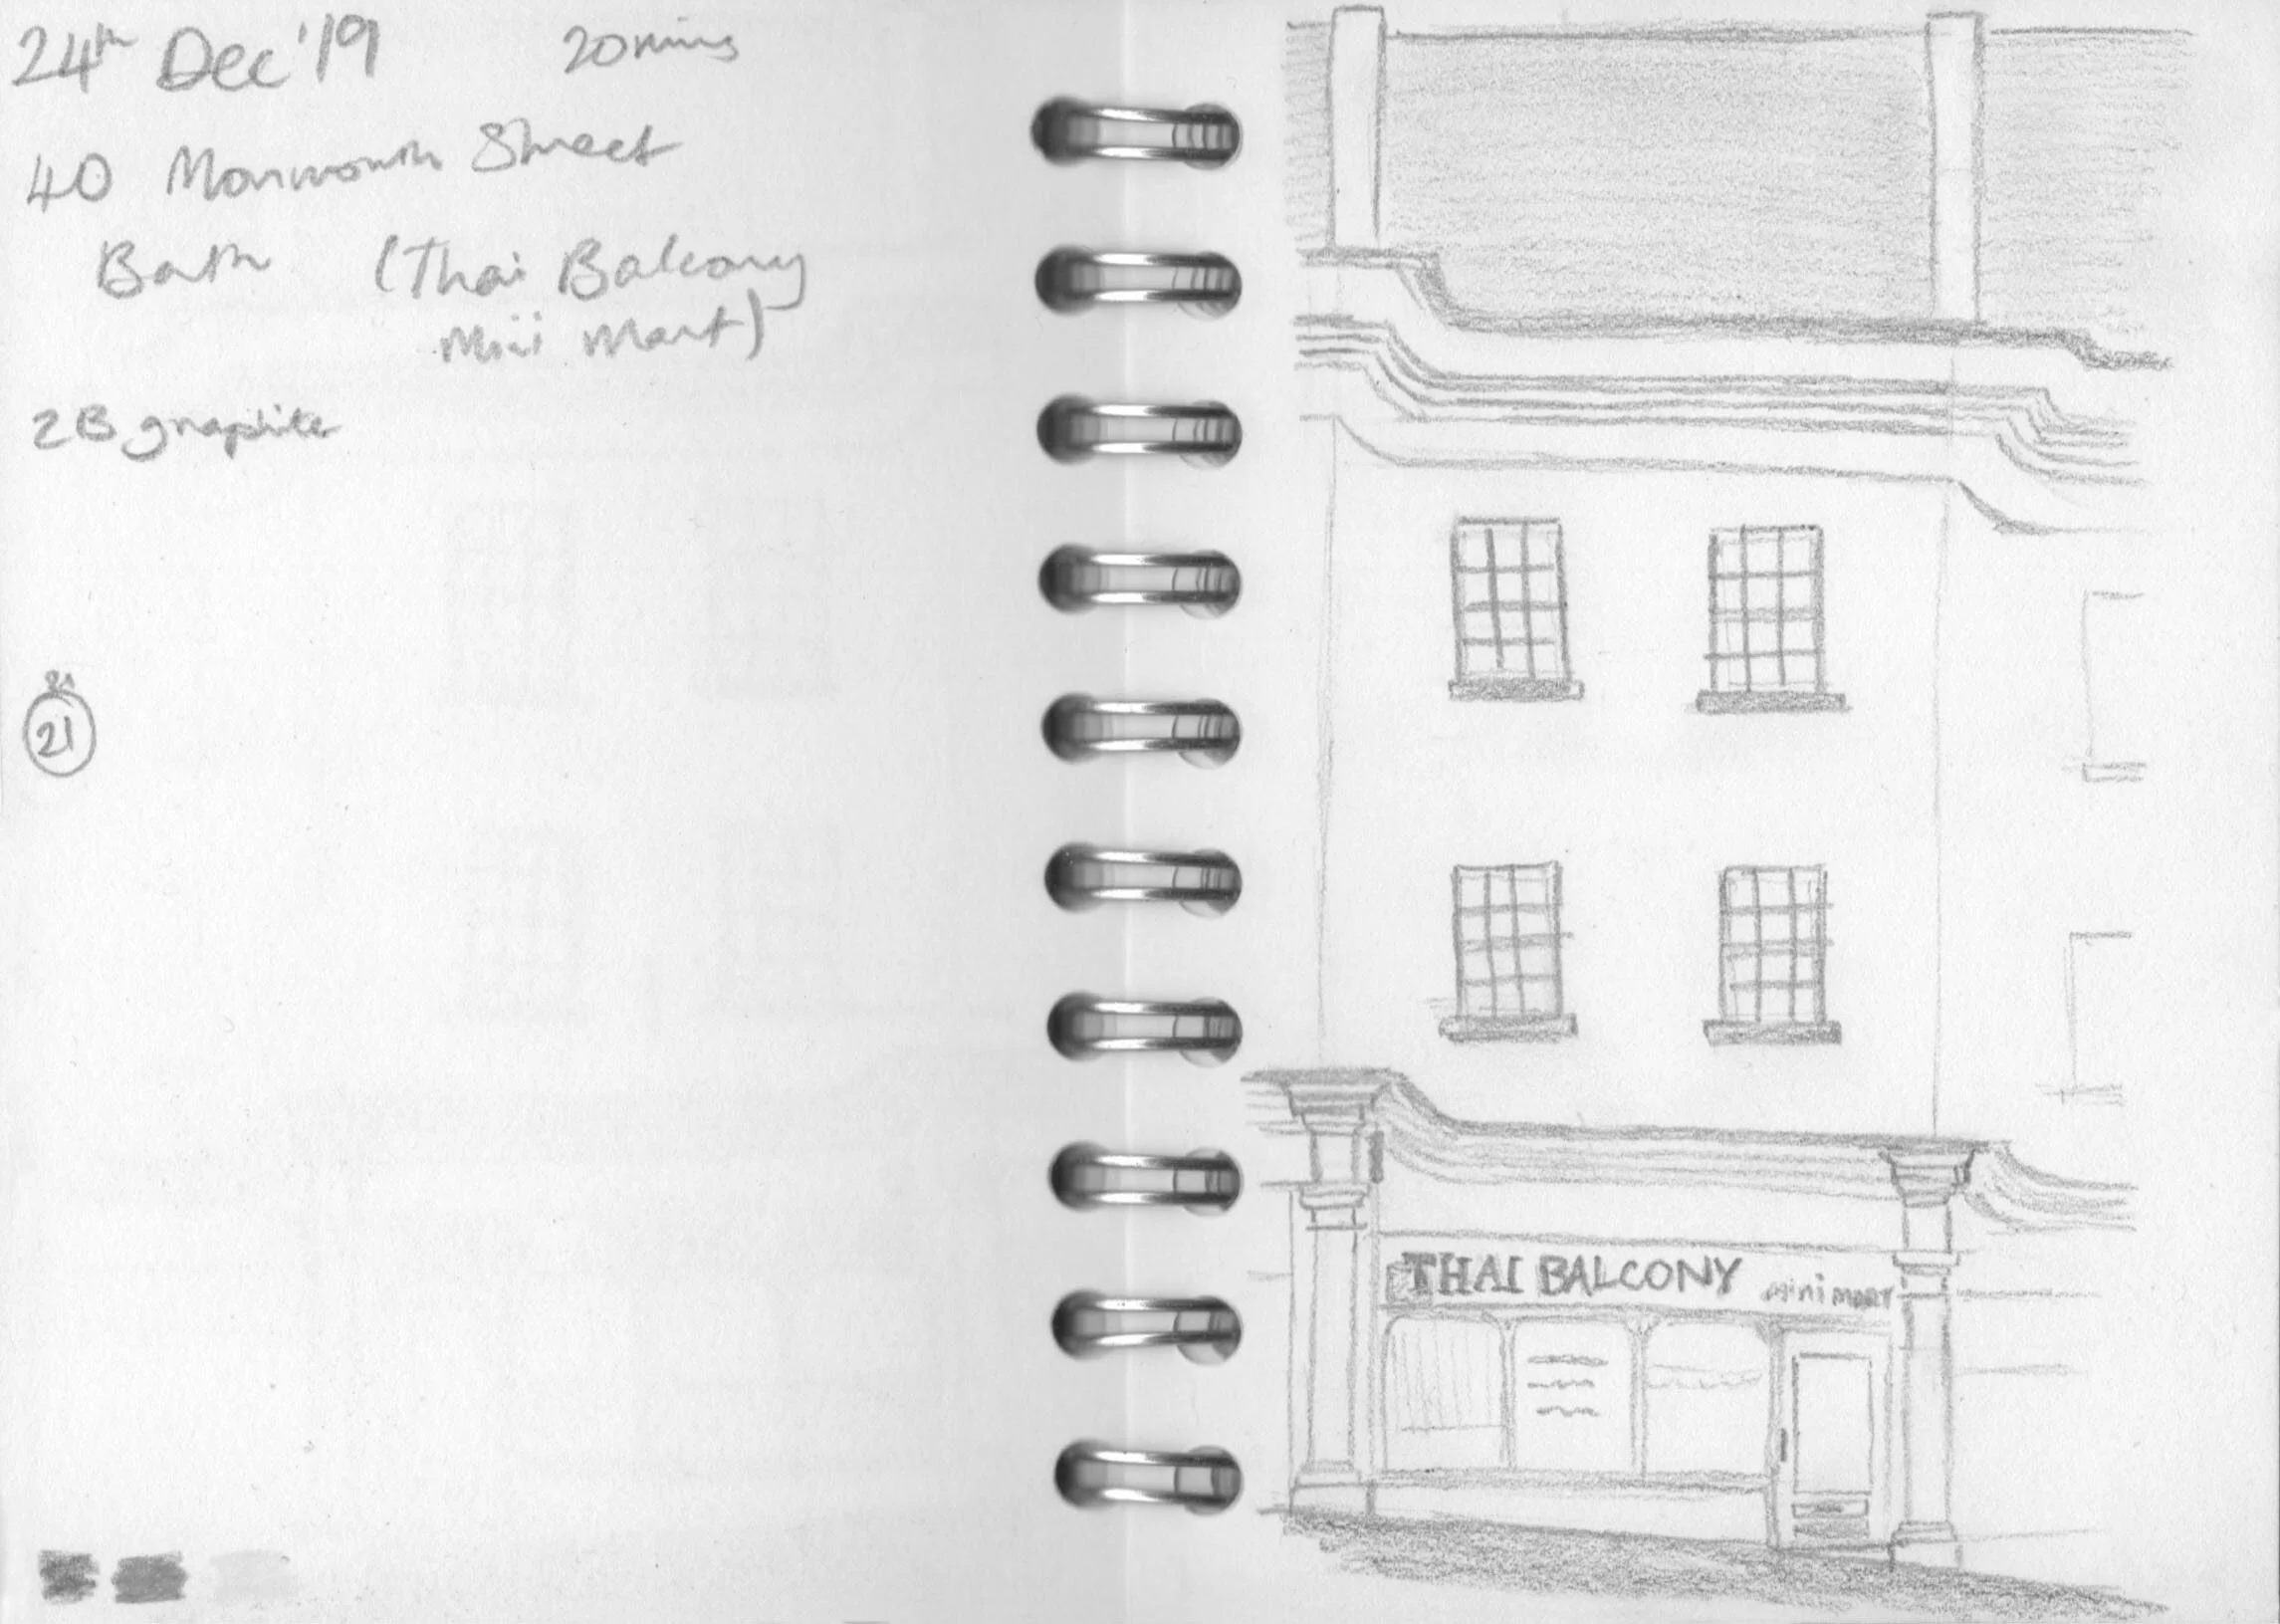 24th Dec '19 20 mins
40 Monmouth Street
Bath (Thai Balcony
Mini Mart)
2B graphite
21
THAI BALCONY mini MART